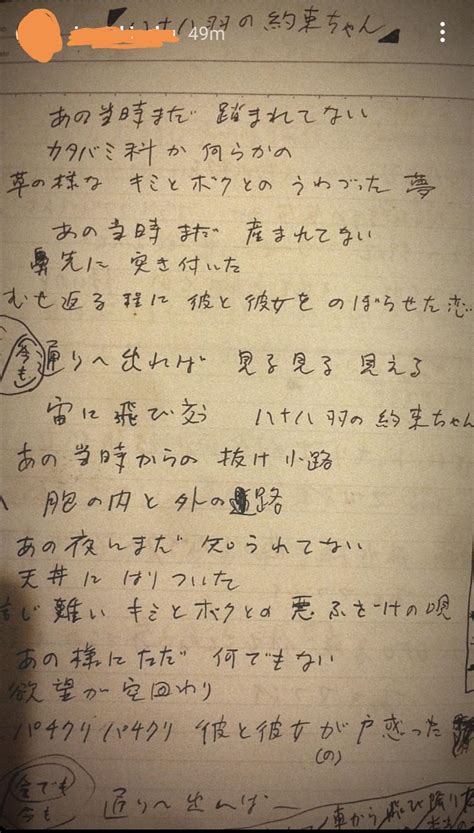 八十八羽の約束ちゃん
49m
あの当時まだ 踏まれてない
カタバミ科か 何らかの
草の様な キミとボクとの うわづった 夢
あの当時 まだ 産まれてない
鼻先に 突き付いた
むせ返る程に 彼と彼女を のぼらせた恋
今も
通りへ出れば 見る見る 見える
宙に飛び交う 八十八羽の約束ちゃん
あの当時からの 抜け小路
胞の内と外の 路
あの夜にまだ 知られてない
天井に はりついた
じ難い キミとボクとの 悪ふざけの唄
あの様に ただ 何でもない
欲望が空回わり
パチクリ パチクリ 彼と彼女が 戸惑った
(の)
今でも
今も
通りへ出れば
車から飛び降り